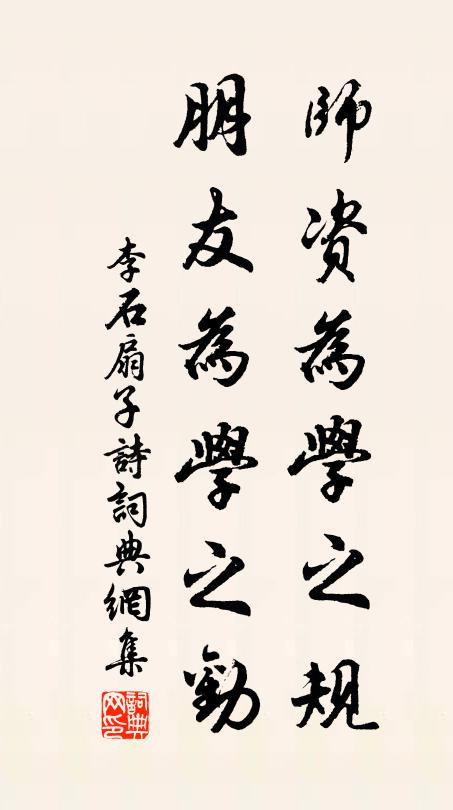 師資為學之規
朋友為學之勸
李石扇子詩詞典網集
詞典網印